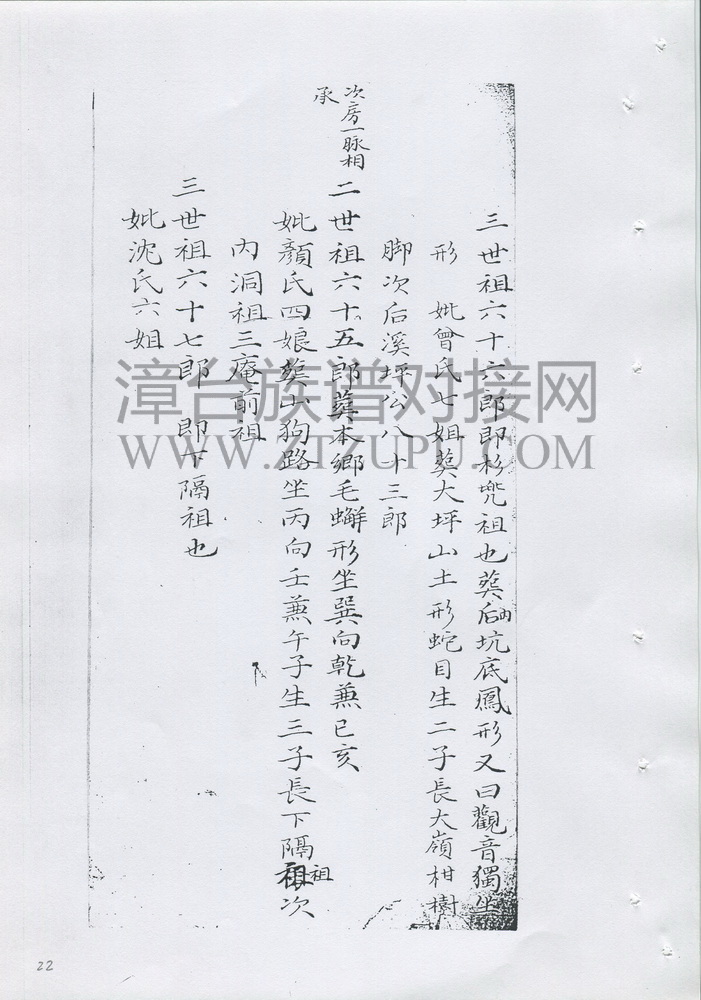 三世祖六十六郎即杉兠祖也葬后内坑底鳳形又曰觀音獨坐
形 妣曾氏七姐葬大坪山土形蛇目生二子長大嶺柑樹
脚次后溪坪公八十三郎
次房一脉相
承
二世祖六十五郎葬本鄉毛蠏形坐巽向乾兼巳亥
妣顏氏四娘葬山狗路坐丙向壬兼午子生三子長下隔祖次
内洞祖三庵前祖
三世祖六十七郎 即下隔祖也
妣沈氏六姐
漳台族谱对接网
WWW.ZTZUPU.COM
22